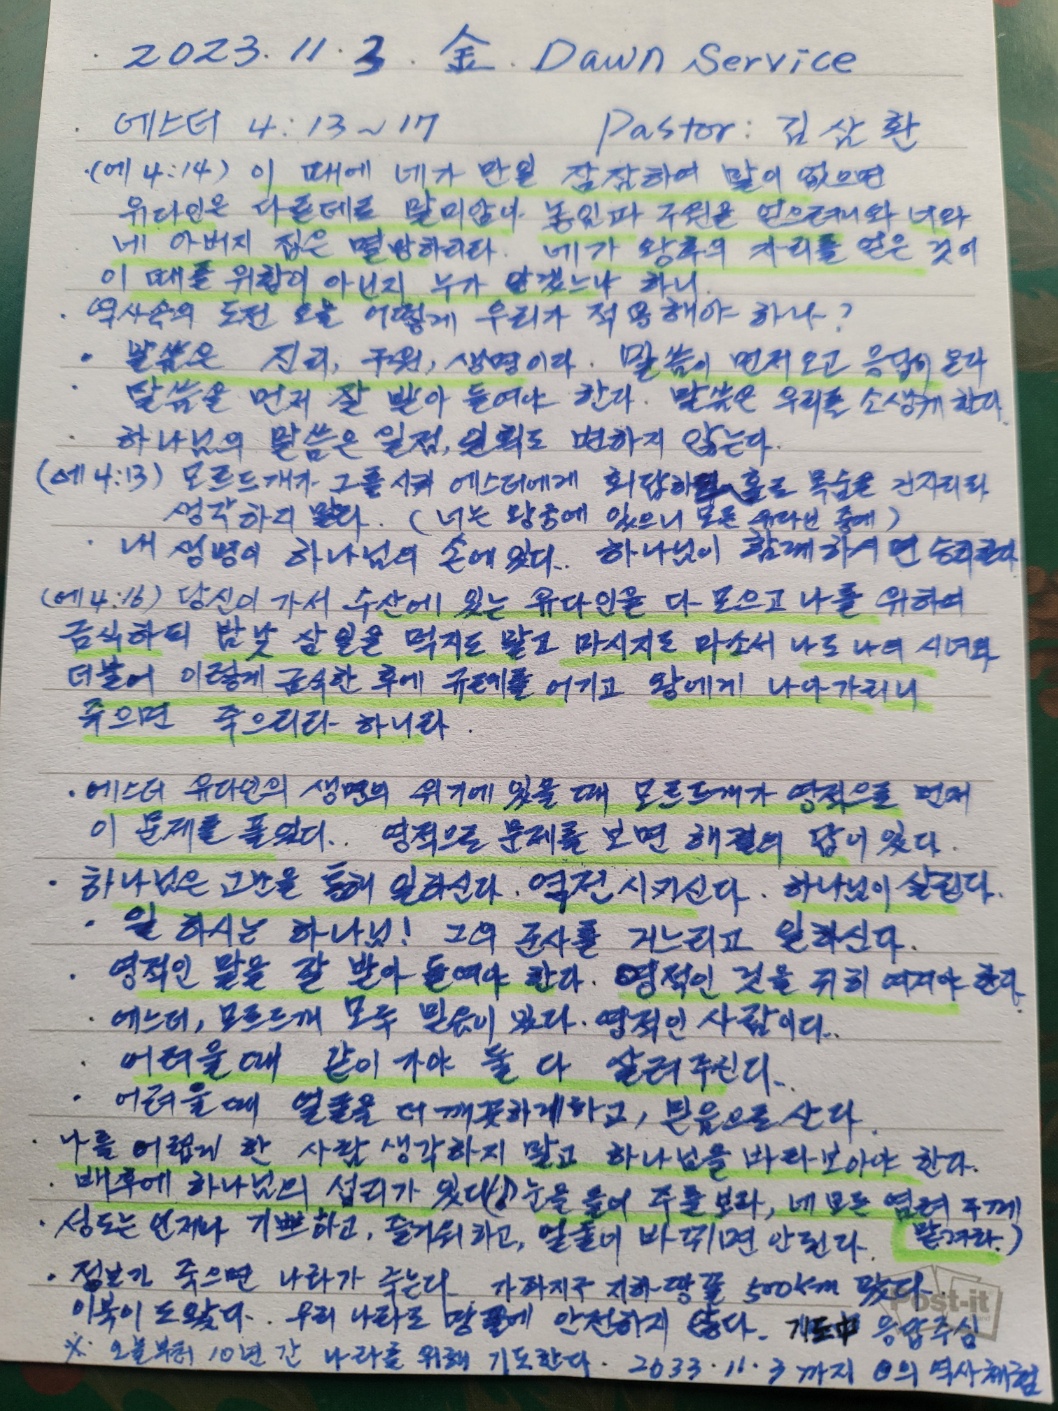 2023.11.3. 金. Dawn Service
에스더 4:13~17 Pastor: 김삼환
(에 4:14) 이 때에 네가 만일 잠잠하여 말이 없으면
유다인은 다른데로 말미암아 놓임과 구원을 얻으려니와 너와
네 아버지 집은 멸망하리라. 네가 왕후의 자리를 얻은 것이
이 때를 위함이 아닌지 누가 알겠느냐 하니.
역사속의 도전 오늘 어떻게 우리가 적용해야 하나?
• 말씀은 진리, 구원, 생명이다. 말씀이 먼저 오고 응답이 온다
· 말씀을 먼저 잘 받아 들여야 한다. 말씀은 우리를 소생케 한다.
· 하나님의 말씀은 일점, 일획도 변하지 않는다.
(에 4:13) 모르드개가 그를 시켜 에스더에게 회답하되 홀로 목숨을 건지리라
생각하지 말라. (너는 왕궁에 있으니 모든 유다인 중에)
· 내 생명이 하나님의 손에 있다.. 하나님이 함께하시면 승리한다
(에 4:16) 당신이 가서 수산에 있는 유다인을 다 모으고 나를 위하여
금식하되 밤낮 삼일을 먹지도 말고 마시지도 마소서 나도 나의 시녀와
더불어 이렇게 금식한 후에 규례를 어기고 왕에게 나아가리니
죽으면 죽으리라 하니라.
· 에스더 유다인의 생명의 위기에 있을 때 모르드개가 영적으로 먼저
이 문제를 풀었다.. 영적으로 문제를 보면 해결의 답이 있다.
· 하나님은 고난을 통해 일하신다. 역전 시키신다. 하나님이 살린다.
· 일 하시는 하나님! 그의 군사를 거느리고 일하신다.
· 영적인 말을 잘 받아 들여야 한다. 영적인 것을 귀히 여겨야 한다.
· 에스더, 모르드개 모두 믿음이 있다. 영적인 사람이다..
· 어려울 때 같이 가야 둘 다 살려주신다..
· 어려울 때 얼굴을 더 깨끗하게하고, 믿음으로 산다.
· 나를 어렵게 한 사람 생각하지 말고 하나님을 바라보아야 한다.
· 배후에 하나님의 섭리가 있다(♪ 눈을 들어 주를 보라, 네 모든 염려 주께
· 성도는 언제나 기쁘하고, 즐거워하고, 얼굴이 바뀌면 안된다. 맡겨라.)
· 정보가 죽으면 나라가 죽는다. 가자지구 지하땅굴 500개 많다.
이북이 도왔다.. 우리 나라도 땅굴에 안전하지 않다. 기도中 응답주심
※ 오늘부터 10년 간 나라를 위해 기도한다. 2033.11.3 까지 의 역사체험
Post-it